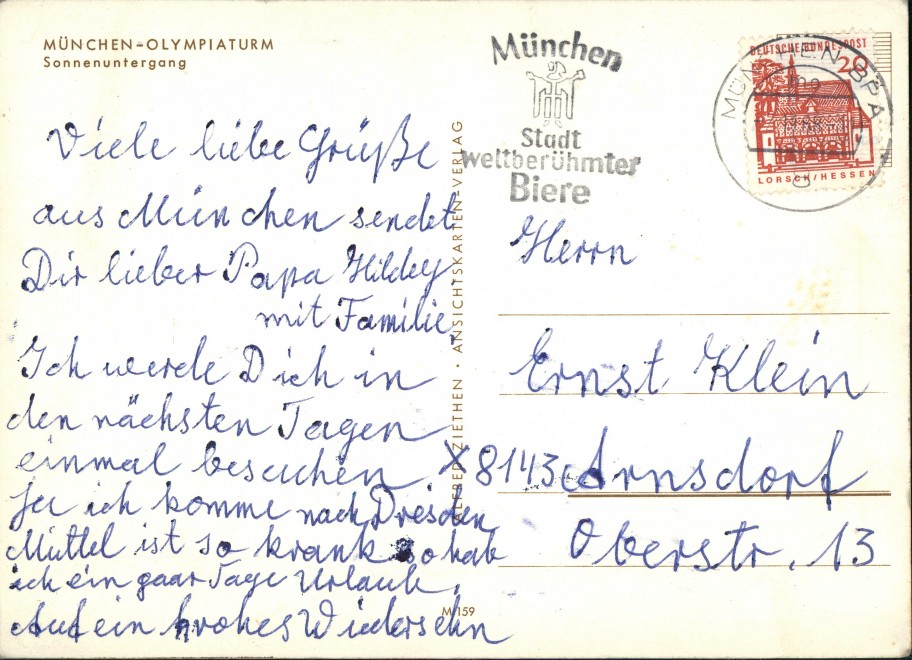 MÜNCHEN-OLYMPIATURM
Sonnenuntergang
Viele liebe Grüße
aus München sendet
Dir lieber Papa
mit Familie
Ich werde Dich in
den nächsten Tagen
einmal besuchen
ich komme nach Dresden
ist so krank so hab
ich ein paar Tage Urlaub.
Auf ein frohes Wiedersehn
ZIETHEN · ANSICHTSKARTEN-VERLAG
M 159
München
Stadt
weltberühmter
Biere
DEUTSCHE BUNDESPOST
20
LORSCH/HESSEN
MÜNCHEN BPA
Herrn
Ernst Klein
X 8143 Arnsdorf
Oberstr. 13